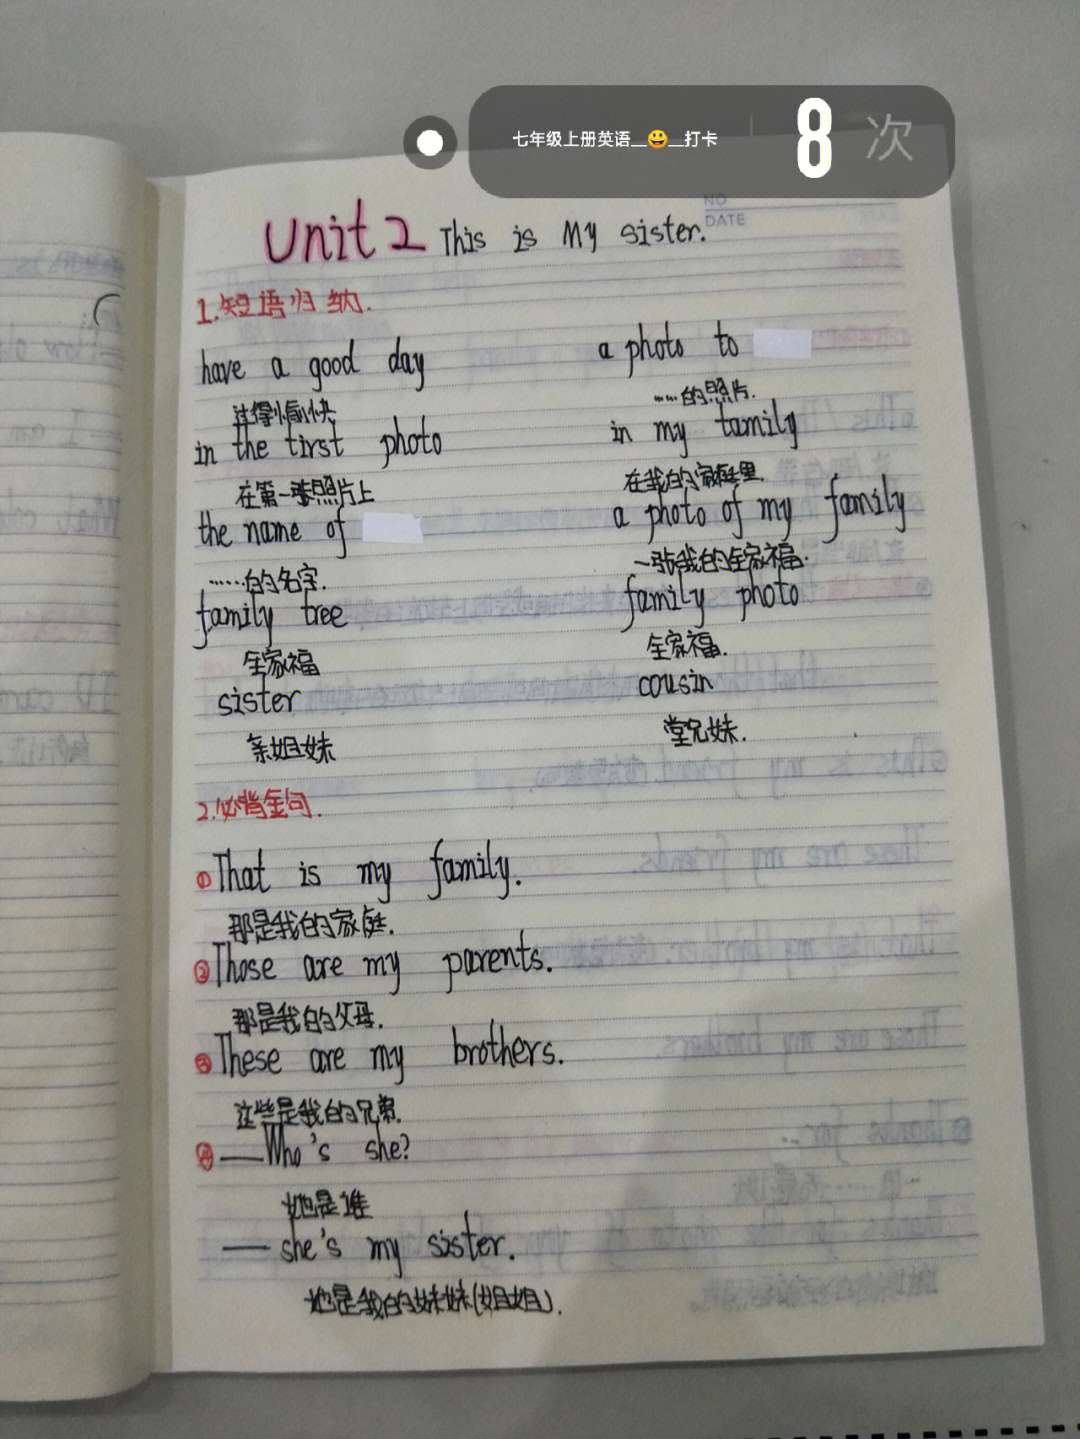 七年级上册英语__😀__打卡 8 次
NO
DATE
Unit 2 This is My sister.
1.短语归纳.
have a good day a photo to
过得愉快 ……的照片.
in the tirst photo in my tamily
在第一张照片上 在我的家庭里.
the name of a photo of my family
……的名字. 一张我的全家福.
family tree family photo
全家福 全家福.
sister cousin
亲姐妹 堂兄妹.
2.必背金句.
①That is my family.
那是我的家庭.
②Those are my parents.
那是我的父母.
③These are my brothers.
这些是我的兄弟.
④——Who's she?
她是谁
—— she's my sister.
她是我的妹妹(姐姐).